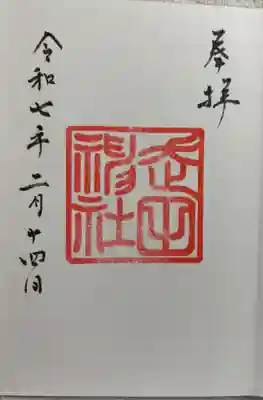 奉拝
武田
神社
令和七年二月十四日